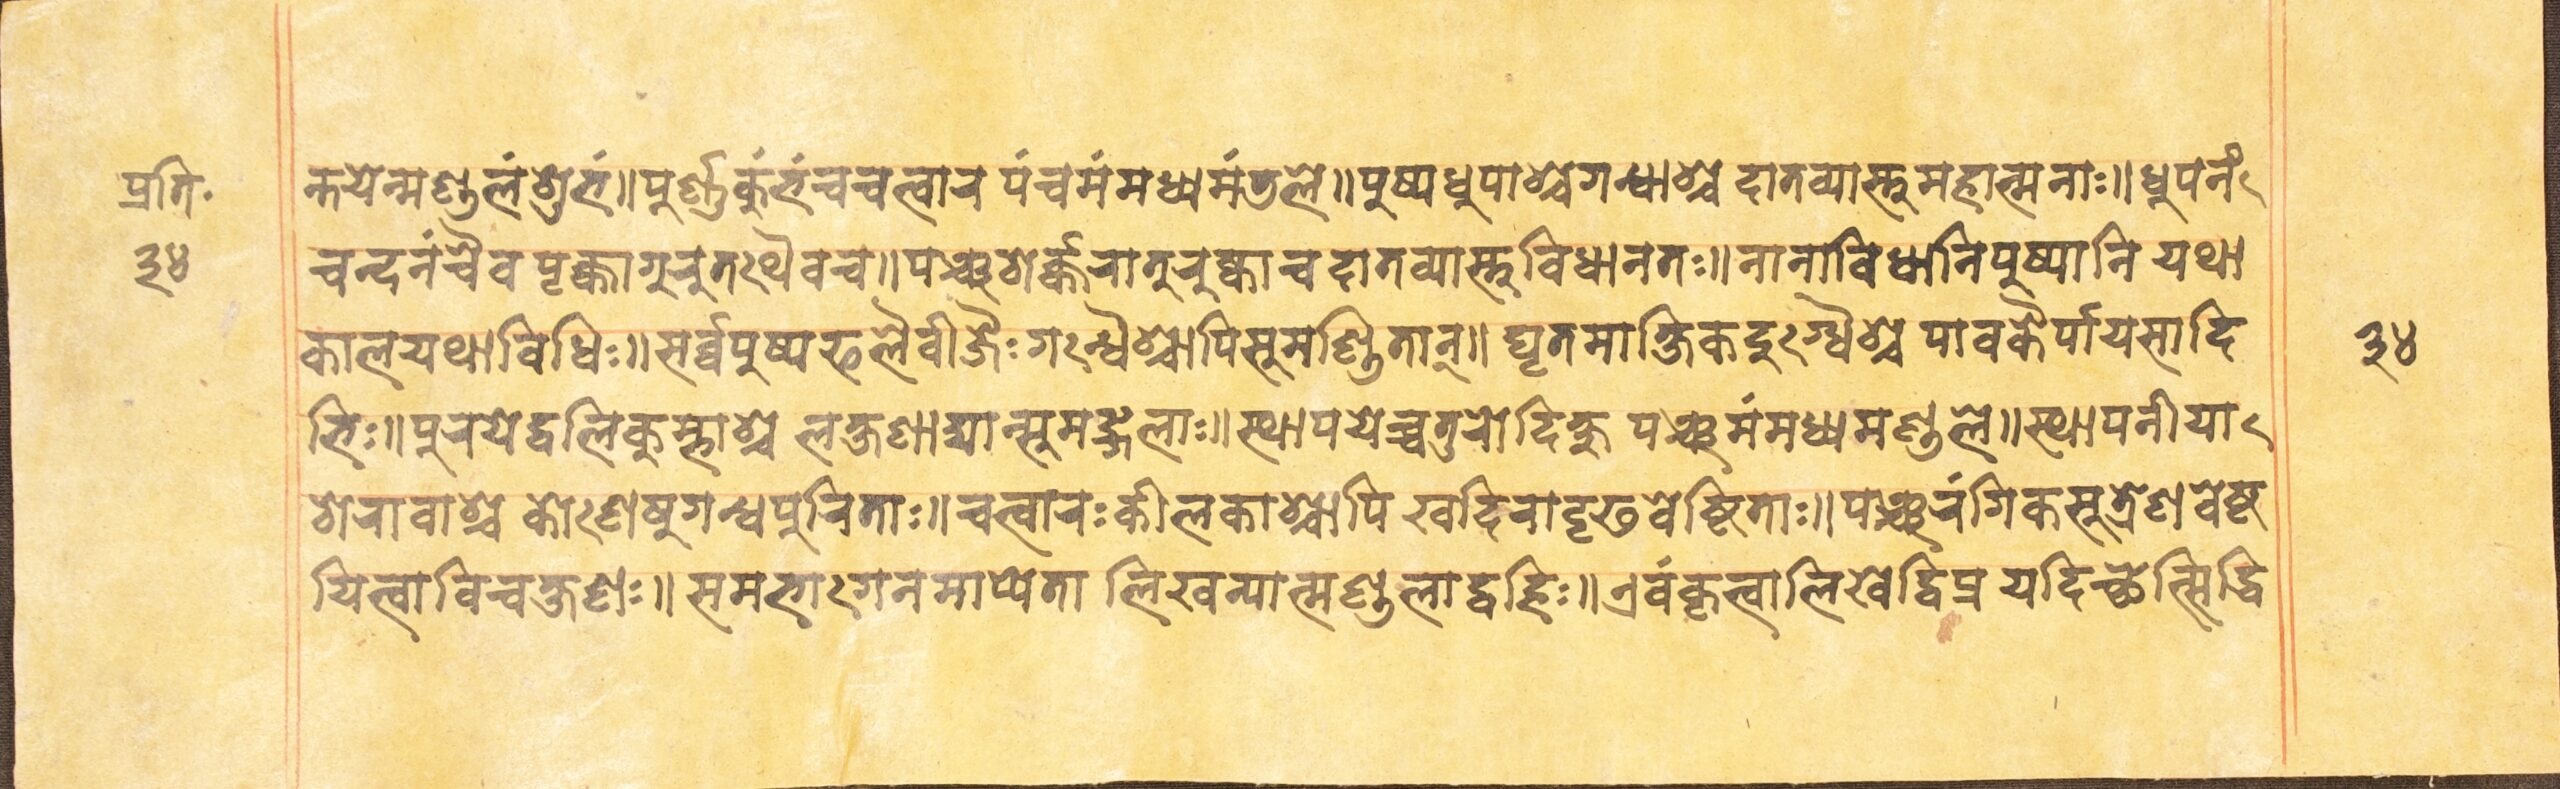 प्रति॰
३४
न्तयेन्मण्डुलं शुभं॥ पुर्ण्णकुंभं च चत्वार पंचमं मध्यमंडले॥ पुष्पधुपाश्च गन्धाश्च दातव्यास्तु महात्मनाः॥ धुपनं
चन्दनं चैव पृक्कागुरु तथैव च॥ पञ्च शर्क्करातुरुष्का च दातव्यास्तु विधानतः॥ नानाविधानि पुष्पानि यथा
काल यथाविधिः॥ सर्व्वपुष्पफलैर्वीजैः गन्धैश्चापि सुमण्डितान्॥ घृतमाक्षिकदुग्धैश्च पावकैर्पायसादि
भिः॥ पुरयेद्वलिकुम्भाश्च लक्षणाद्यान्सुमङ्गलाः॥ स्थापयेच्चतुरो दिक्षु पञ्चमं मध्यमण्डले॥ स्थापनीया
शरावाश्च कोणेषु गन्धपुरिताः॥ चत्वारः कीलकाश्चापि खदिरा दृढवेष्टिताः॥ पञ्चरंगिकसूत्रेण वेष्ट
यित्वा विचक्षणः॥ समभागेन माप्येता लिखन्यात्मण्डलाद्वहिः॥ एवं कृत्वा लिखेद्विप्र यदिच्छेत्सिद्धि
३४